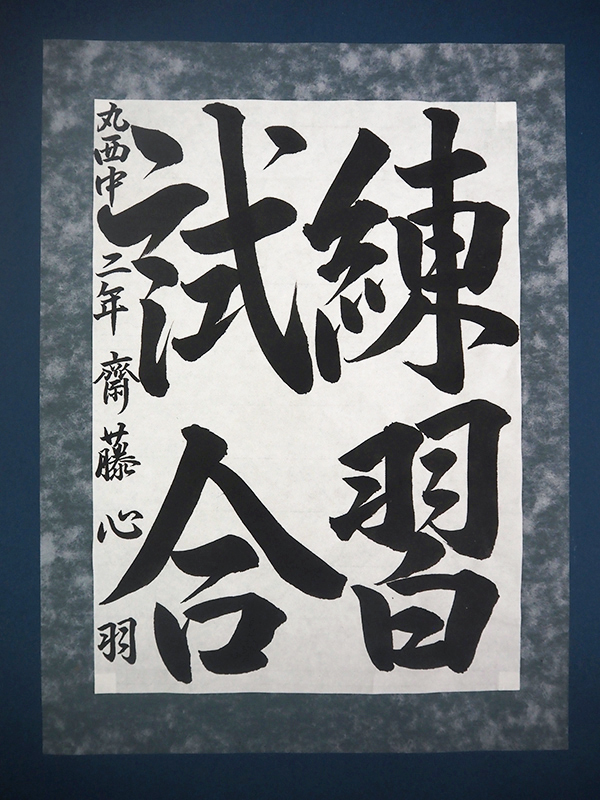 練習
試合
丸西中 二年 齋藤心羽